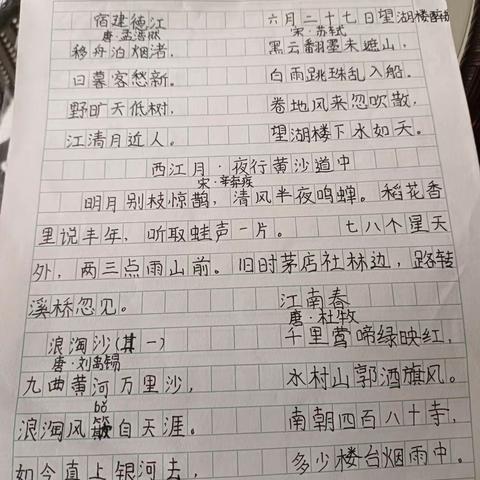 宿建德江
唐·孟浩然
移舟泊烟渚，
日暮客愁新。
野旷天低树，
江清月近人。
六月二十七日望湖楼醉书
宋·苏轼
黑云翻墨未遮山，
白雨跳珠乱入船。
卷地风来忽吹散，
望湖楼下水如天。
西江月·夜行黄沙道中
宋·辛弃疾
明月别枝惊鹊，清风半夜鸣蝉。稻花香
里说丰年，听取蛙声一片。 七八个星天
外，两三点雨山前。旧时茅店社林边，路转
溪桥忽见。
浪淘沙(其一)
唐·刘禹锡
九曲黄河万里沙，
浪淘风簸自天涯。
如今直上银河去，
江南春
唐·杜牧
千里莺啼绿映红，
水村山郭酒旗风。
南朝四百八十寺，
多少楼台烟雨中。